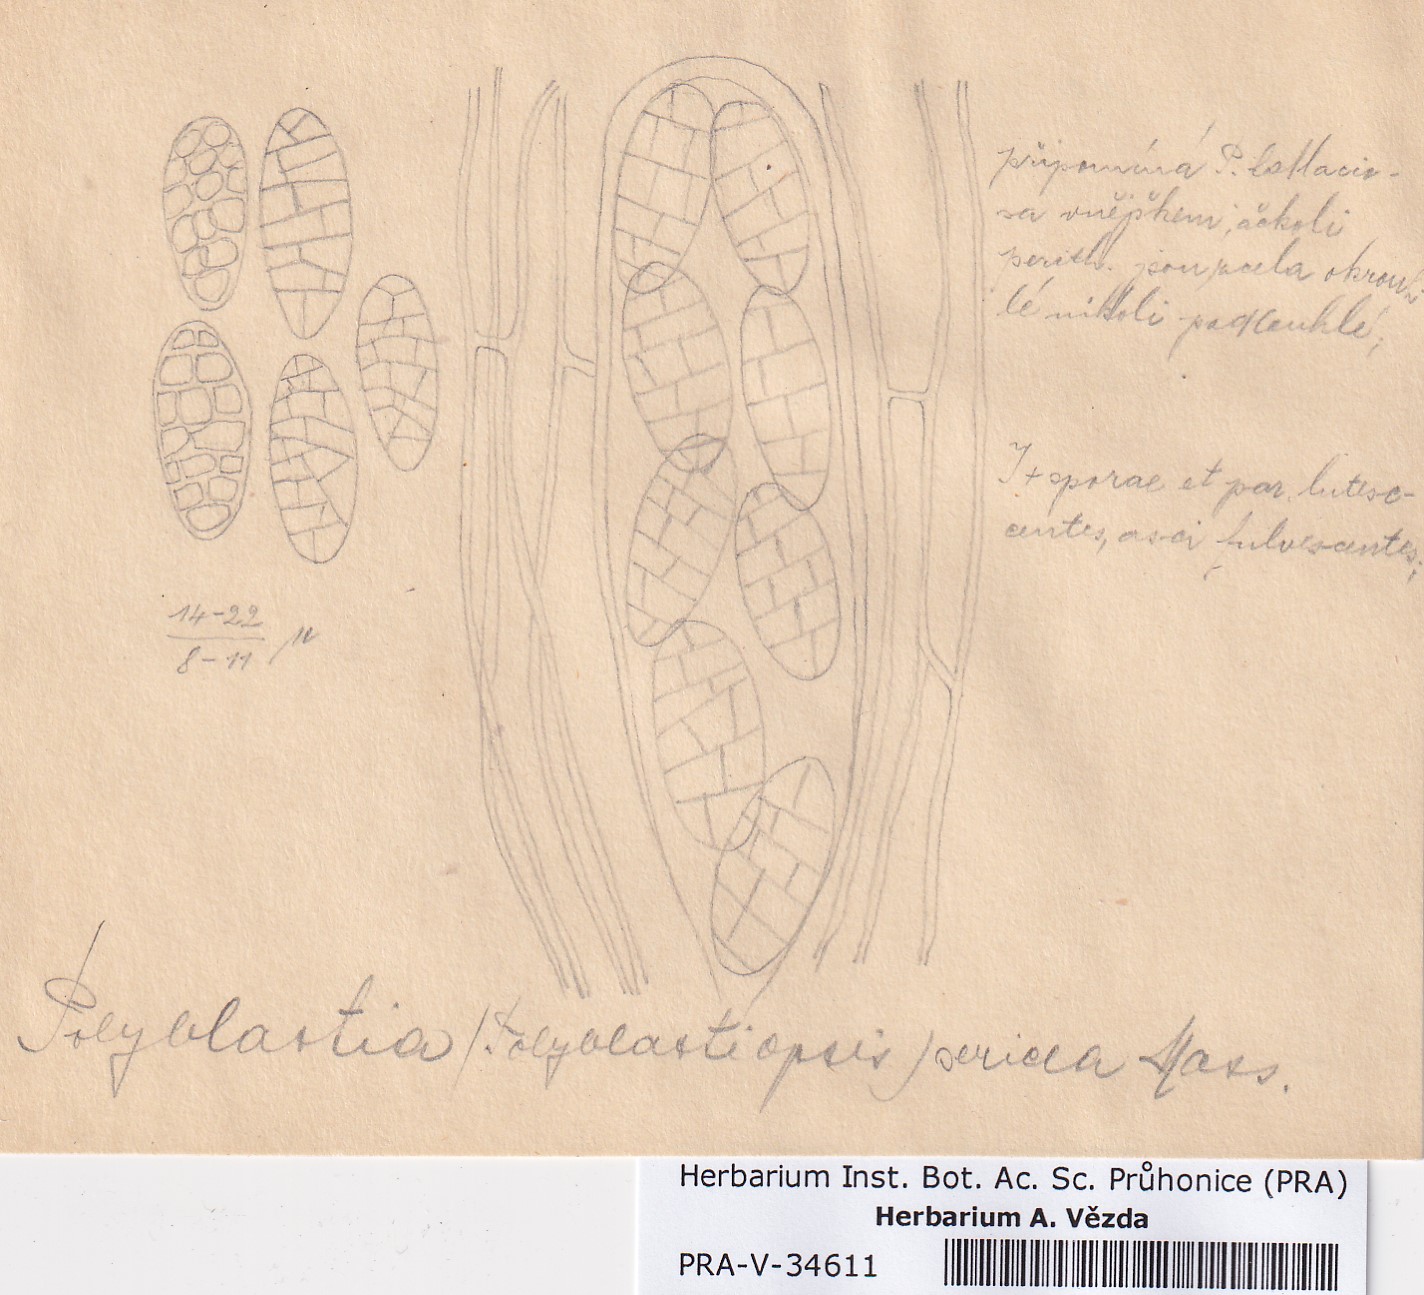 připomíná P. lactacio-
sa vnějškem, ačkoli
perith. jsou zcela okrouh-
lé nikoli podlouhlé;
J+ sporae et par. lutesc-
entes, asci fulvescentes;
14-22
8-11 µ
Polyblastia (Polyblastiopsis) sericea Mass.
Herbarium Inst. Bot. Ac. Sc. Průhonice (PRA)
Herbarium A. Vězda
PRA-V-34611